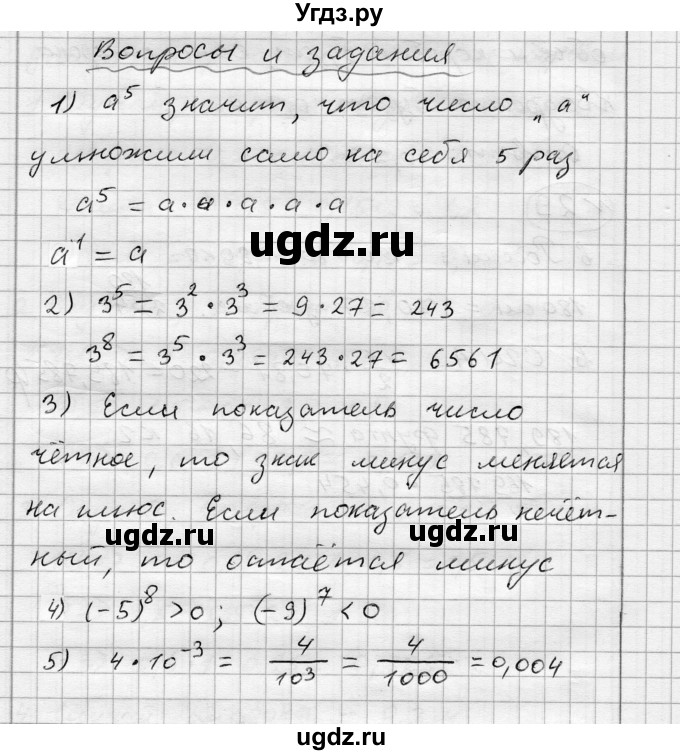 Угдз.ру
Вопросы и задания
1) a⁵ значит, что число „a“
умножили само на себя 5 раз
a⁵ = a·a·a·a·a
ugdz.ru
a¹ = a
2) 3⁵ = 3² · 3³ = 9 · 27 = 243
3⁸ = 3⁵ · 3³ = 243 · 27 = 6561
3) Если показатель число
чётное, то знак минус меняется
на плюс. Если показатель нечёт-
ugdz.ru ugdz.ru
ный, то остаётся минус
4) (-5)⁸ > 0 ; (-9)⁷ < 0
5) 4 · 10⁻³ = 4/10³ = 4/1000 = 0,004
ugdz.ru ugdz.ru